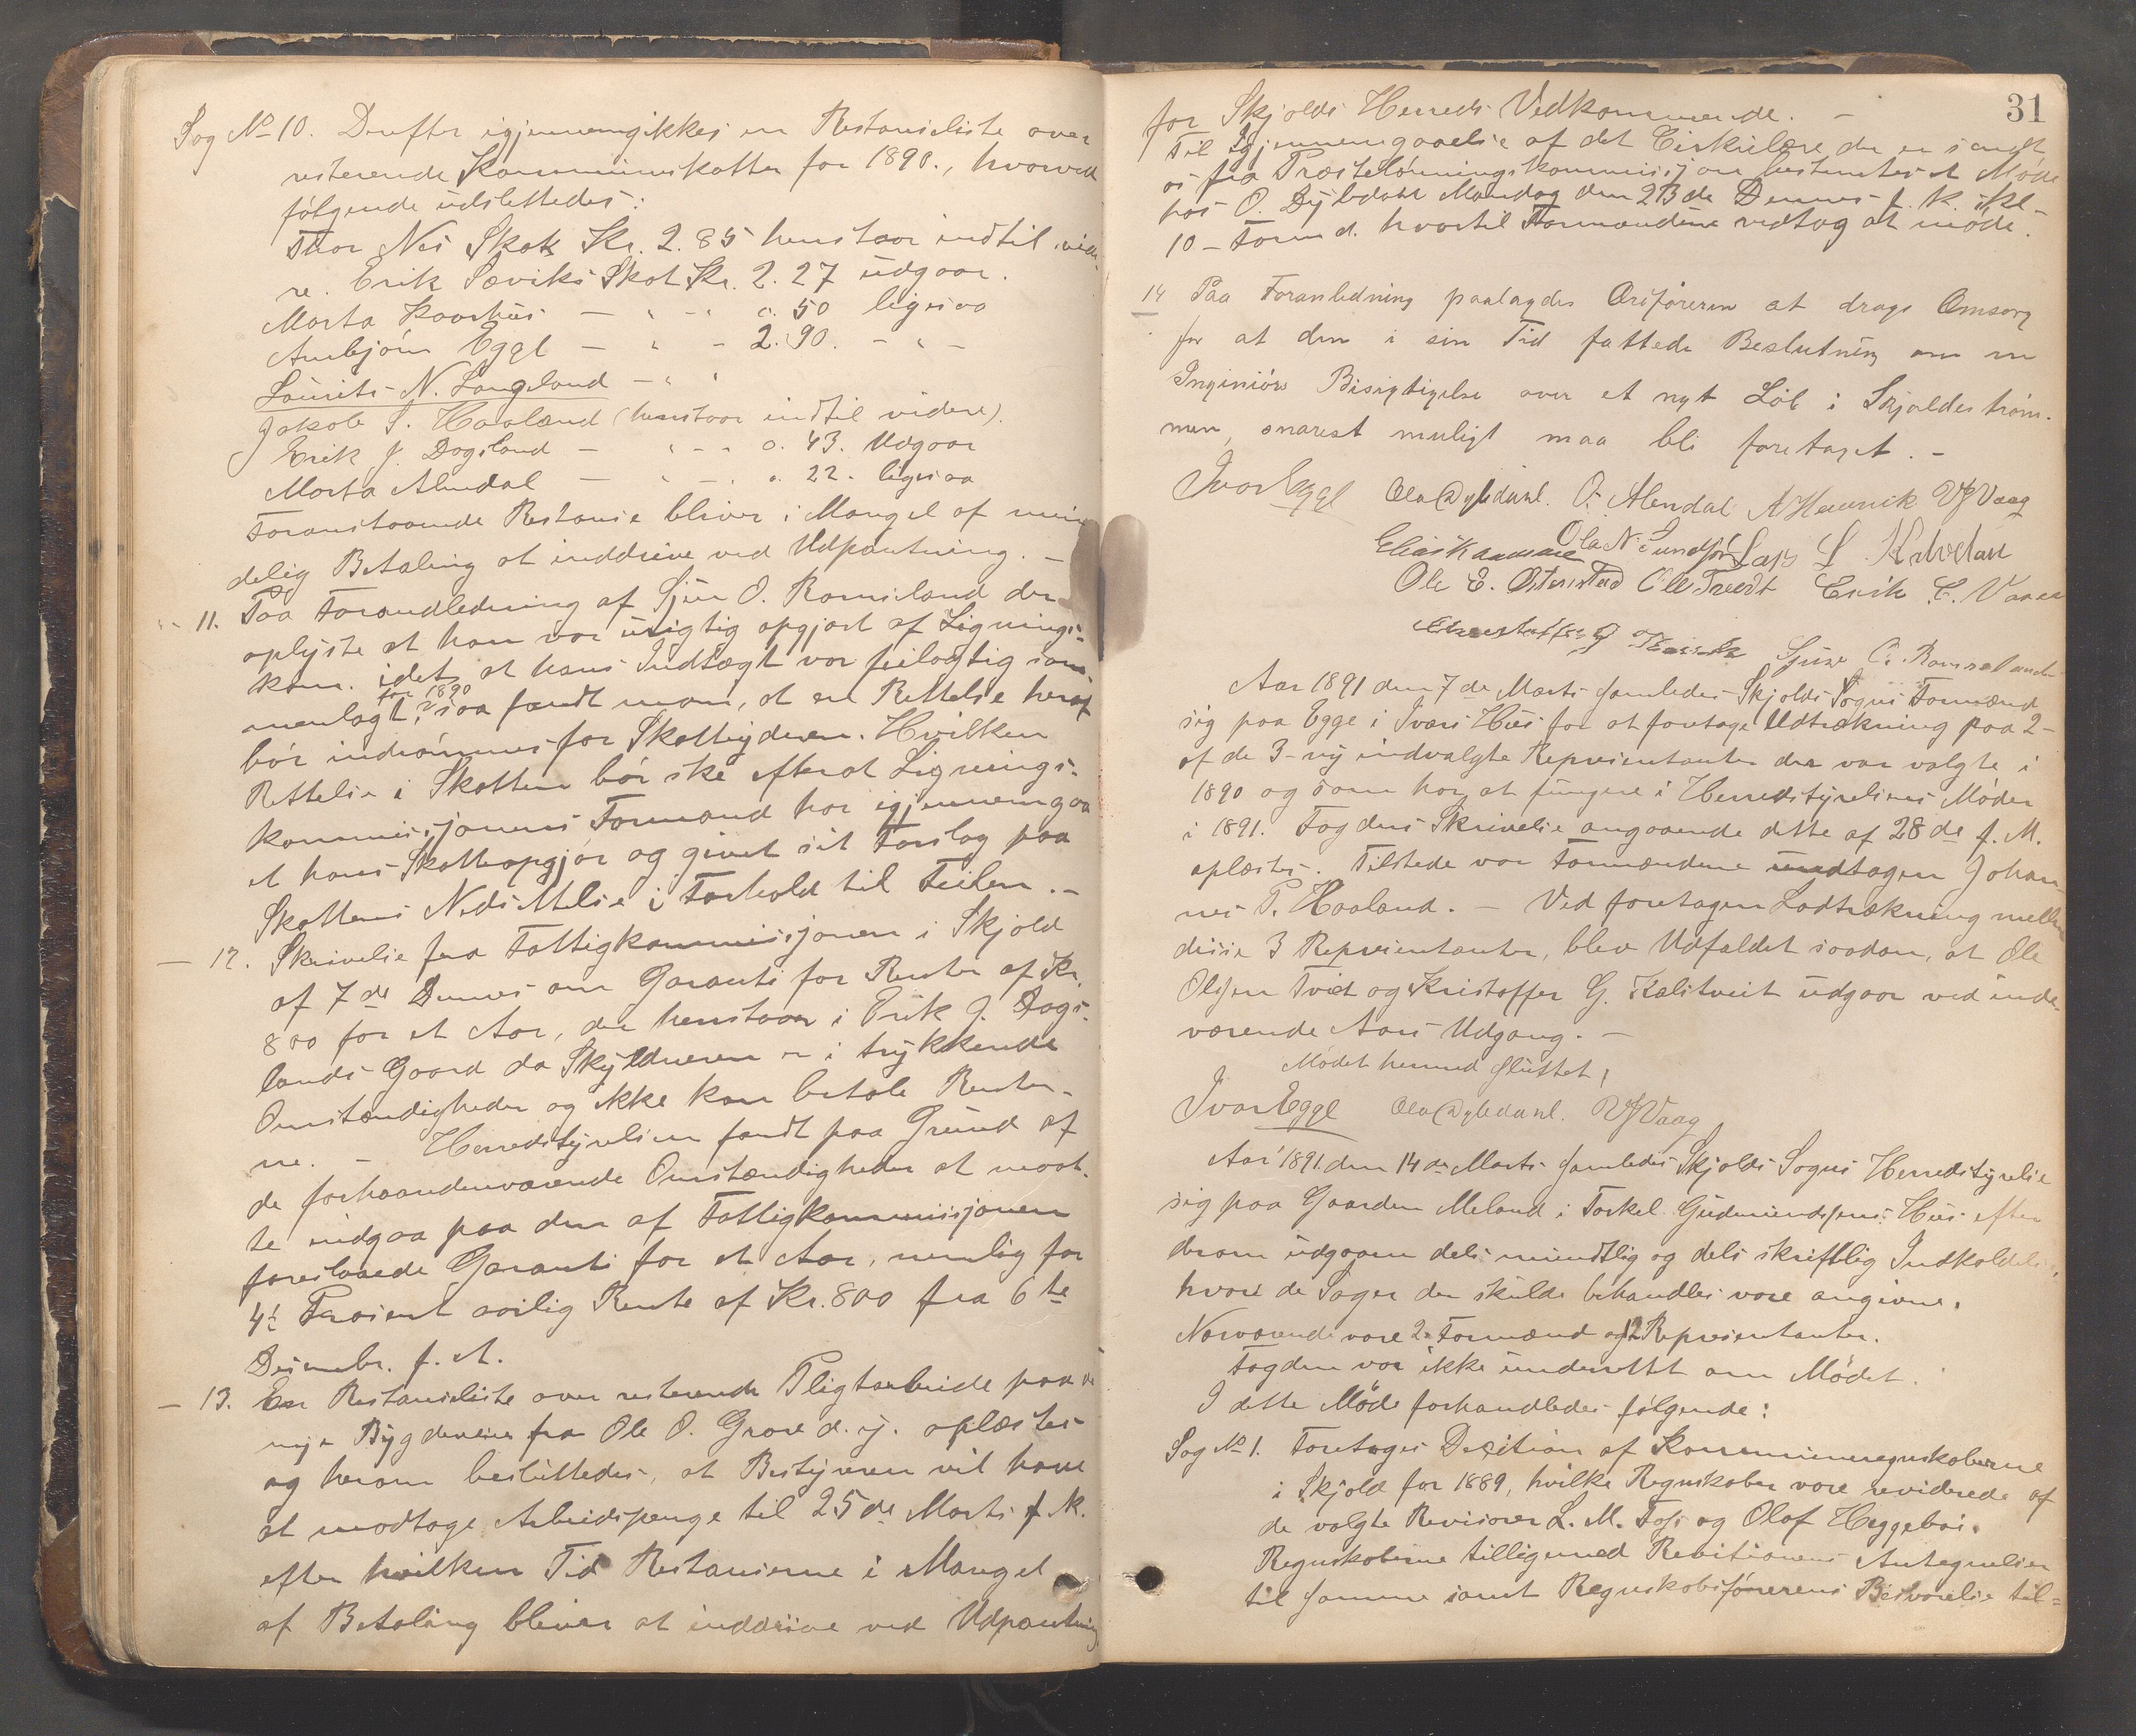 Sag No 10. Derefter igjennemgikkes en Restanseliste over
resterende Kommuneskatter for 1890., hvorved
følgende udslettedes:
Thor Nes Skat Kr. 2.85 henstaar indtil vide-
re. Erik Sæviks Skat Kr. 2.27 udgaar.
Marta Kaarhus — " - 0. 50 ligesaa
Anbjørn Egge — " - 2.90. - " -
Laurits N. Langeland - " "
Jakob S. Haaland (henstaar indtil videre).
Erik J. Dagsland — " - - 0. 43. Udgaar
Marta Alendal — " - " 0. 22. ligesaa
Foranstaaende Restanse bliver i Mangel af min-
delig Betaling at inddrive ved Udpantning. —
" 11. Paa Forandledning af Sjur O. Ramsland der
oplyste at han var urigtig opgjort af Lignings-
kom. idet at hans Indtægt var feilagtig sam-
menlagt, for 1890 saa fandt man, at en Rettelse heraf
bør indrømmes for Skatteyderen. Hvilken
Rettelse i Skatten bør ske efterat Lignings-
kommissjonens Formand har igjennemgaa
et hans Skatteopgjør og givet sit Forslag paa
Skattens Nedsættelse i Forhold til Feilen. —
— 12. Skrivelse fra Fattigkommissjonen i Skjold
af 7de Dennes om Garanti for Renter af Kr.
800 for et Aar, der henstaar i Erik J. Dags-
lands Gaard da Skyldneren er i trykkende
Omstændigheder og ikke kan betale Renter-
ne. — Herredstyrelsen fandt paa Grund af
de forhaandenværende Omstændigheder at maat-
te indgaa paa den af Fattigkommissjonen
foreslaaede Garanti for et Aar, nemlig for
4½ Prosent aarlig Rente af Kr. 800 fra 6te
Desember. f. A.
— 13. En Restanseliste over resterende Pligtarbeide paa de
nye Bygdeveie fra Ole O. Grove d. y. oplæstes
og herom besluttedes, at Bestyreren vil have
at modtage Arbeidspenge til 25de Marts f. K.
efter hvilken Tid Restanserne i Mangel
af Betaling bliver at inddrive ved Udpantning
31
for Skjolds Herreds Vedkommende. —
Til Igjennemgaaelse af det Cirkulære der er sendt
os fra Præstelønningskommissjon bestemtes et Møde
hos O. Dybdahl Mandag den 23de Dennes f. K. Kl-
10 – Form d. hvortil Formændene vedtog at møde.
14 Paa Foranledning paalagdes Ordføreren at drage Omsorg
for at den i sin Tid fattede Beslutning om en
Ingeniørs Besigtigelse over et nyt Løb i Skjoldestrøm-
men, snarest muligt maa bli foretaget. —
Ivar Egge Ola Dybdahl. O. Alendal A Hemnik VJVaag
Elias Kamme Ola N. Sundfør Lars L
Ole E. Østensted Ole Tvedt Erik E. Vaaga
Sjur O. Ramsland
Aar 1891 den 7de Marts samledes Skjolds Sogns Formænd
sig paa Egge i Ivars Hus for at foretage Udtrækning paa 2-
af de 3-ny indvalgte Representanter der var valgte i
1890 og som har at fungere i Herredstyrelsens Møder
i 1891. Fogdens Skrivelse angaaende dette af 28de f. M.
oplæstes. Tilstede var Formændene undtagen Johan-
nes P. Haaland. — Ved foretagen Lodtrækning mellem
disse 3 Representanter, blev Udfaldet saadan, at Ole
Olsen Tvedt og Kristoffer G. Kalstveit udgaar ved inde-
værende Aars Udgang. —
Mødet hermed sluttet,
Ivar Egge Ola Dybdahl. VJVaag
Aar 1891. den 14de Marts samledes Skjolds Sogns Herredstyrelse
sig paa Gaarden Meland i Torkel Gudmundsens Hus efter
derom udgaaen dels mundtlig og dels skriftlig Indkaldelse,
hvori de Sager der skulde behandles vare angivne.
Nærværende vare 2. Formænd og 12 Representanter.
Fogden var ikke underrettet om Mødet.
I dette Møde forhandledes følgende:
Sag No 1. Foretoges Desition af Kommuneregnskaberne
i Skjold for 1889, hvilke Regnskaber vare reviderede af
de valgte Revisorer L. M. Fass og Olaf Heggebø.
Regnskaberne tilligemed Revisionens Antegnelser
til samme samt Regnskabsførerens Besvarelse til-